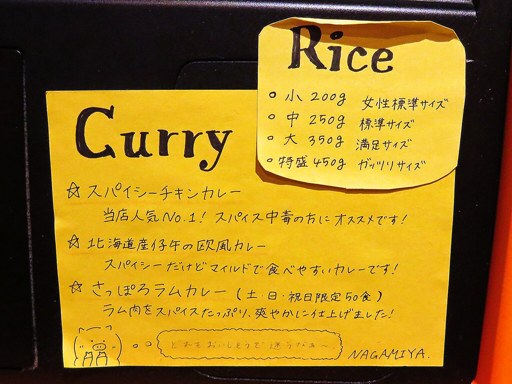 Rice
○ 小 200g 女性標準サイズ
○ 中 250g 標準サイズ
○ 大 350g 満足サイズ
○ 特盛 450g ガッツリサイズ
Curry
☆ スパイシーチキンカレー
当店人気No.1! スパイス中毒の方にオススメです!
☆ 北海道産仔牛の欧風カレー
スパイシーだけどマイルドで食べやすいカレーです!
☆ さっぽろラムカレー (土・日・祝日限定50食)
ラム肉をスパイスたっぷり、爽やかに仕上げました!
どれもおいしそうで迷うなぁ〜
NAGAMIYA.